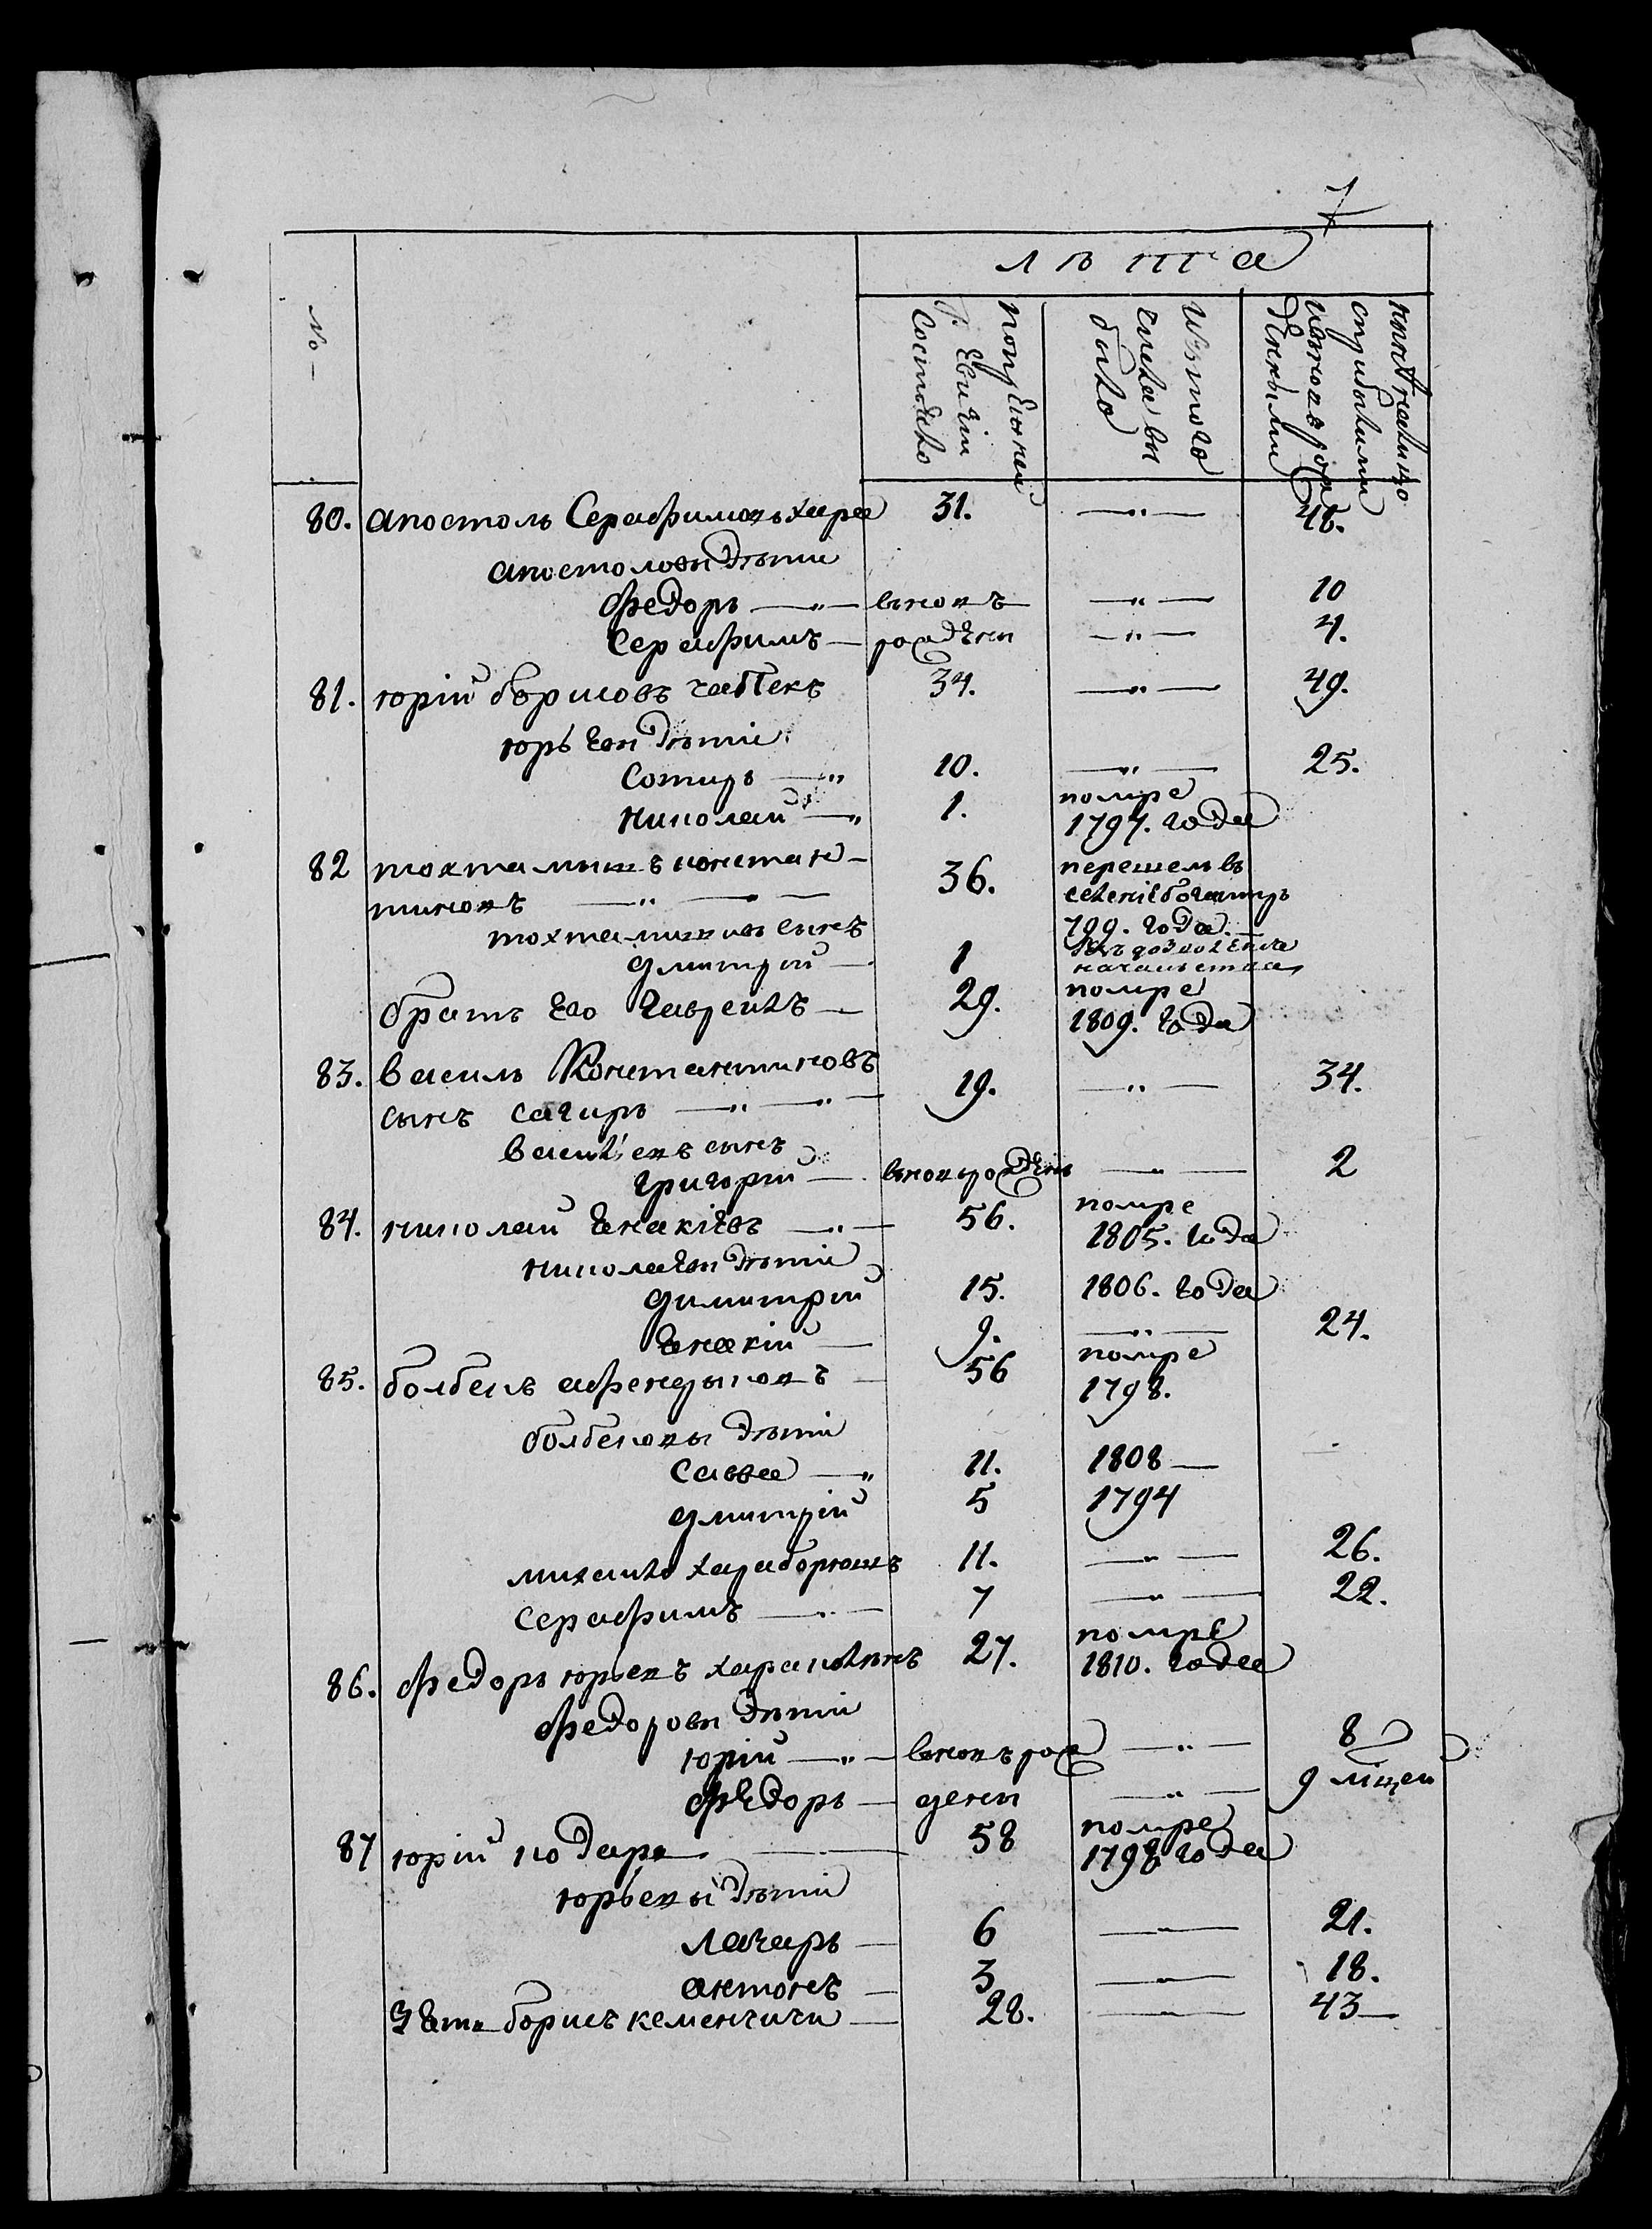 7
лѣта
№
по прежней ревизіи состояло
изъ того числа выбыло
ныне на лицо с прибылыми и вновь рожденными
80. апостолъ Серафимовъ хара 31. —„— 46.
апостоловы дѣти
федоръ —„— вновь —„— 10
Серафимъ — рожденъ —„— 4.
81. юрій борисовъ чабпекъ 34. —„— 49.
юрьевы дѣти
Сотиръ —„ 10. —„— 25.
николай —„ 1. помре
1797. года
82 тохтамышъ констан-
тиновъ —„— 36. перешелъ въ
селеніе богатыръ
799. года
тохтамышовъ сынъ
дмитрій — 1 съ дозволенія
начальства
братъ его гаврилъ — 29. помре
1809. года
83. василь Константиновъ
сынъ сагиръ —„—„— 19. —„— 34.
васильевъ сынъ
григорій — вновь рожденъ —„— 2
84. николай енакіевъ —„— 56. помре
1805. года
николаевы дѣти
димитрій 15. 1806. года
енакій — 9. —„— 24.
85. болбекъ афендыковъ — 56 помре
1798.
болбековы дѣти
савва —„ 11. 1808 —
дмитрій 5 1794
михайло караборюшъ 11. —„— 26.
серафимъ —„— 7 —„— 22.
86. федоръ юрьевъ 27. помре
1810. года
федоровы дѣти
юрій —„— вновь рож —„— 8
федоръ — дены —„— 9 місцей
87 юрій кодаря — 58 помре
1798 года
юрьевы дѣти
лазарь — 6 —„— 21.
антонъ — 3 —„— 18.
зять борисъ кеменчичи — 28. —„— 43 —